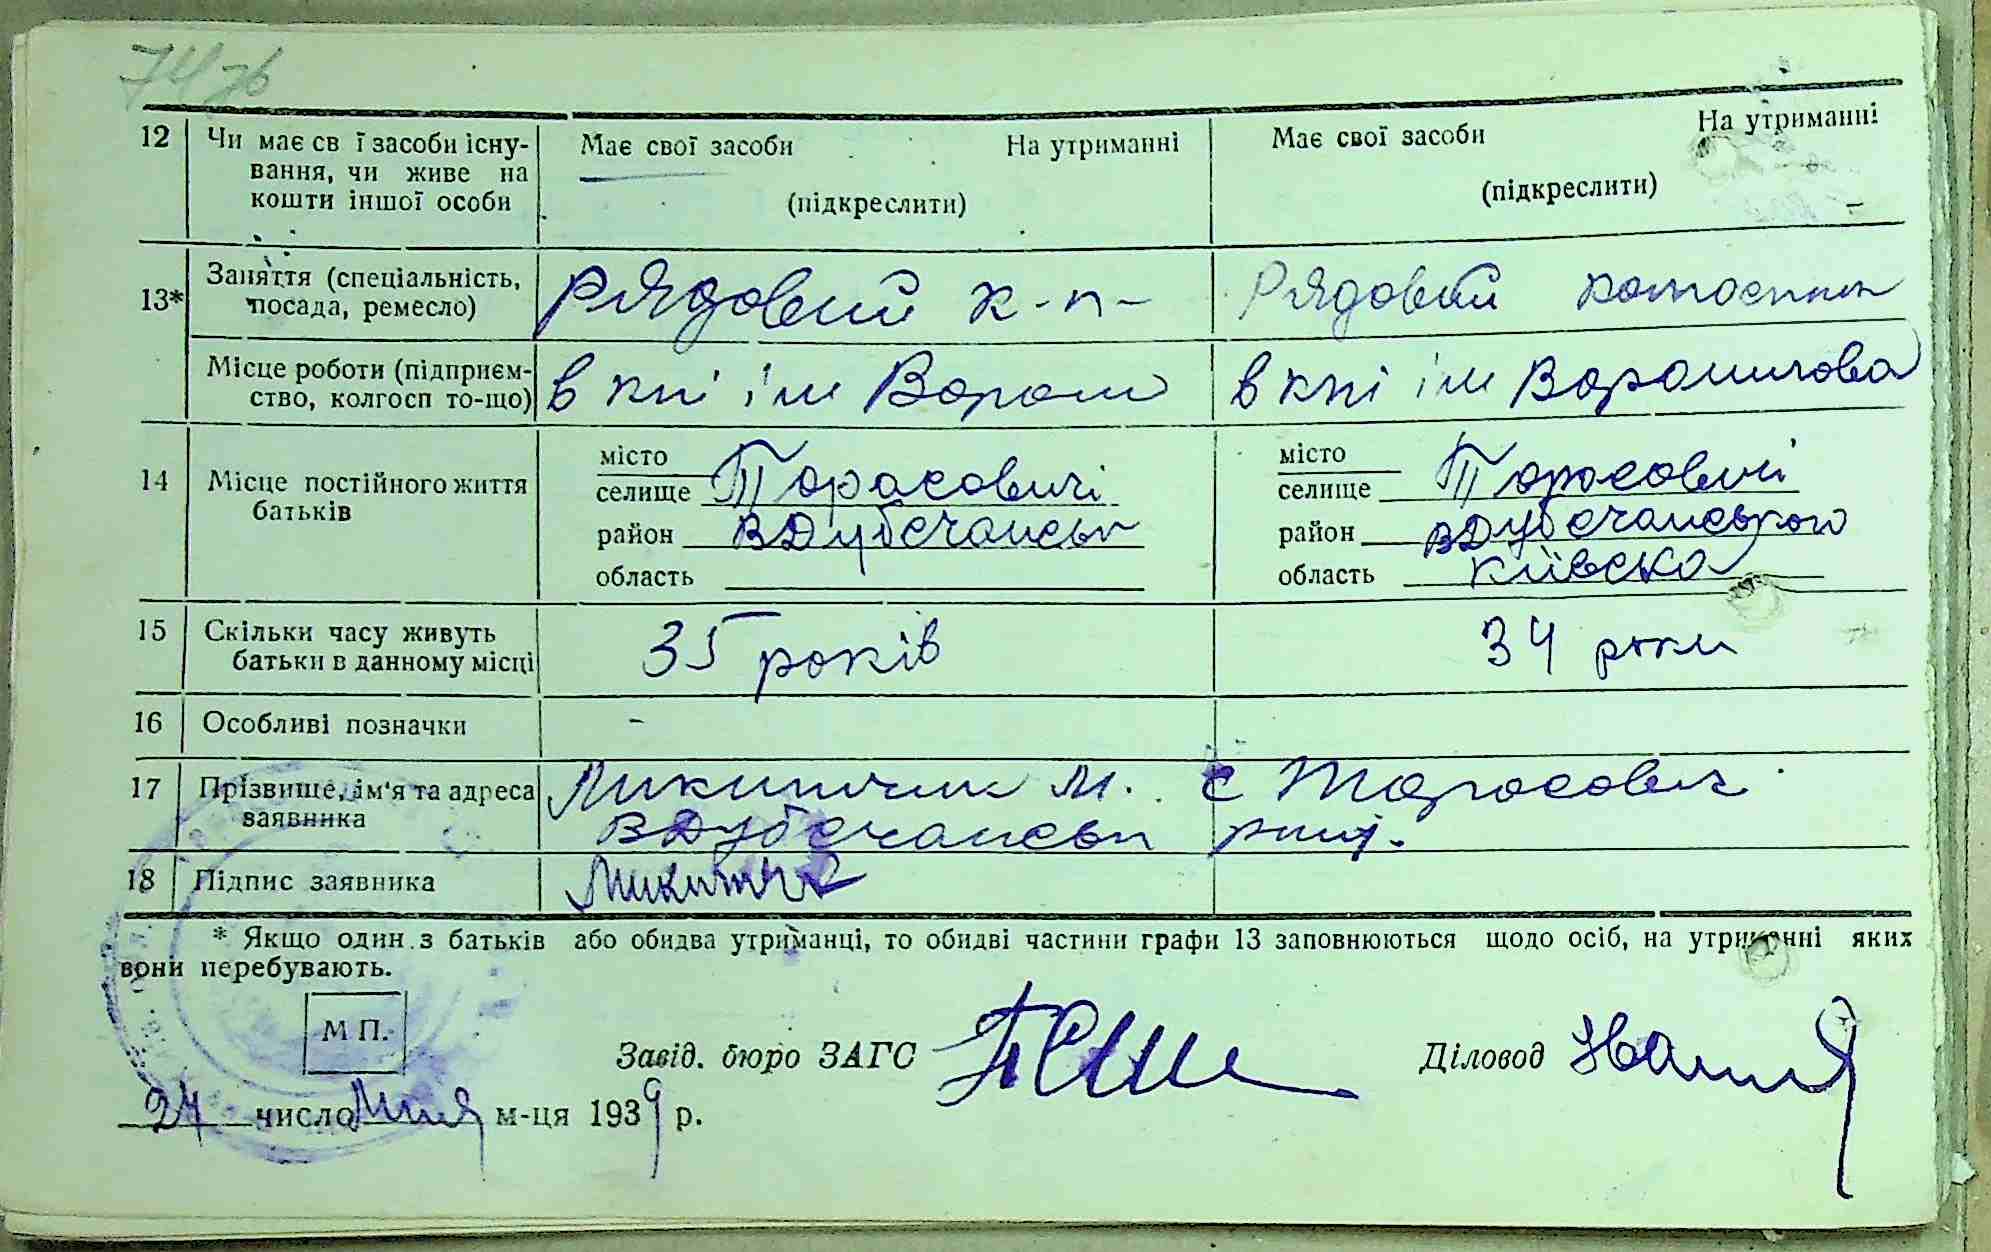 74 зв
12 Чи має св ї засоби існу- Має свої засоби На утриманні Має свої засоби На утриманні
вання, чи живе на
кошти іншої особи (підкреслити) (підкреслити)
13* Заняття (спеціальність, Рядовий к-п- Рядовий
посада, ремесло)
Місце роботи (підприєм- в кпі імВорош в кпі ім Ворошилова
ство, колгосп то-що)
місто місто
14 Місце постійного життя селище Торасовичі селище Торасовичі
батьків район ВДубечанськ район ВДубечанського
область область Київска
15 Скільки часу живуть 35 років 34 роки
батьки в данному місці
16 Особливі позначки -
17 Прізвище, ім'я та адреса Микитчик М. с Тарасович
заявника ВДубечанськ
18 Підпис заявника
* Якщо один з батьків або обидва утриманці, то обидві частини графи 13 заповнюються щодо осіб, на утриманні яких
вони перебувають.
М П.
Завід. бюро ЗАГС Діловод
27 число м-ця 1939 р.